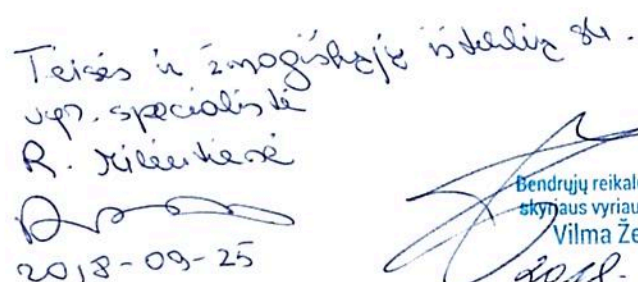 Teisės ir žmogiškųjų išteklių sk.
vyr. specialistė
R.
2018-09-25
Bendrųjų reikal
skyriaus vyriau
Vilma Že
2018.